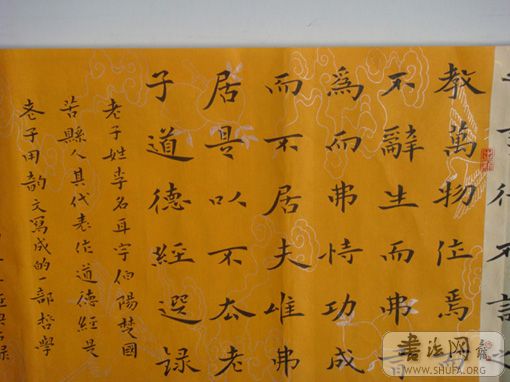 行不言
教萬物作焉
不辭生而弗
為而弗恃功成
而不居夫唯弗
居是以不去老
子道德經選録
老子姓李名耳字伯陽楚國
苦縣人其代表作道德經是
老子用韵文寫成的一部哲學
書法网
WWW.SHUFA.ORG